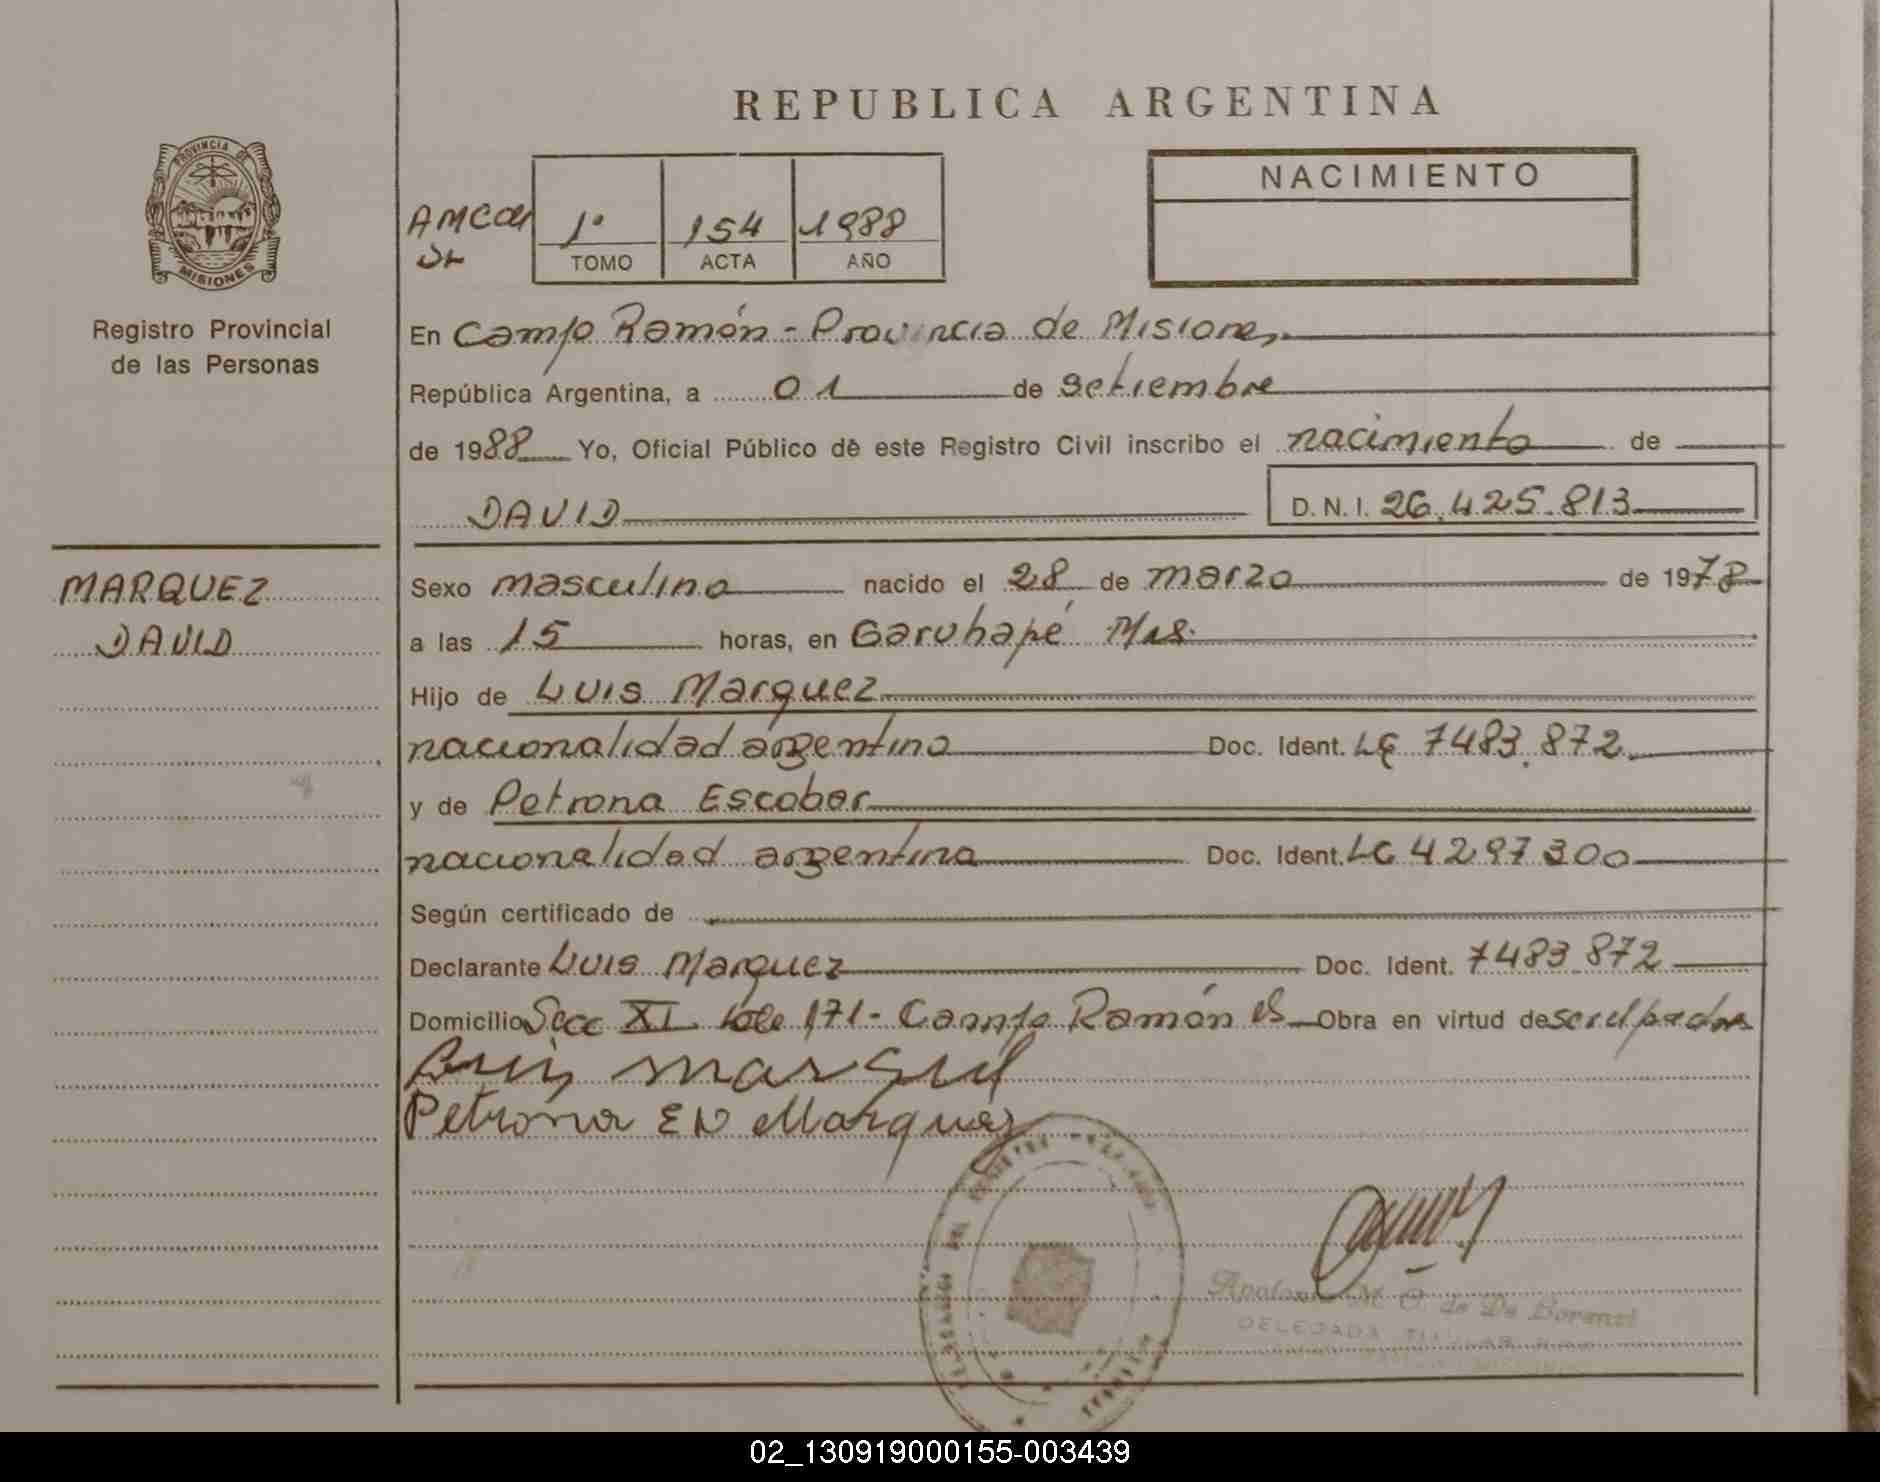 REPUBLICA ARGENTINA
PROVINCIA DE
MISIONES
Registro Provincial
de las Personas
1º 154 1988
TOMO ACTA AÑO
NACIMIENTO
En Campo Ramón - Provincia de Misiones
República Argentina, a 01 de setiembre
de 1988 Yo, Oficial Público de este Registro Civil inscribo el nacimiento de
DAVID D. N. I. 26.425.813
MARQUEZ
DAVID
Sexo masculino nacido el 28 de marzo de 1978
a las 15 horas, en Garuhapé Mns.
Hijo de Luis Marquez
nacionalidad argentino Doc. Ident. LE 7483.872
y de Petrona Escobar
nacionalidad argentina Doc. Ident. LC 4297300
Según certificado de
Declarante Luis Marquez Doc. Ident. 7483.872
Domicilio Secc XI lote 171 - Campo Ramón Obra en virtud de ser el padre
Petrona EN Marquez
DELEGADA TITULAR
02_130919000155-003439